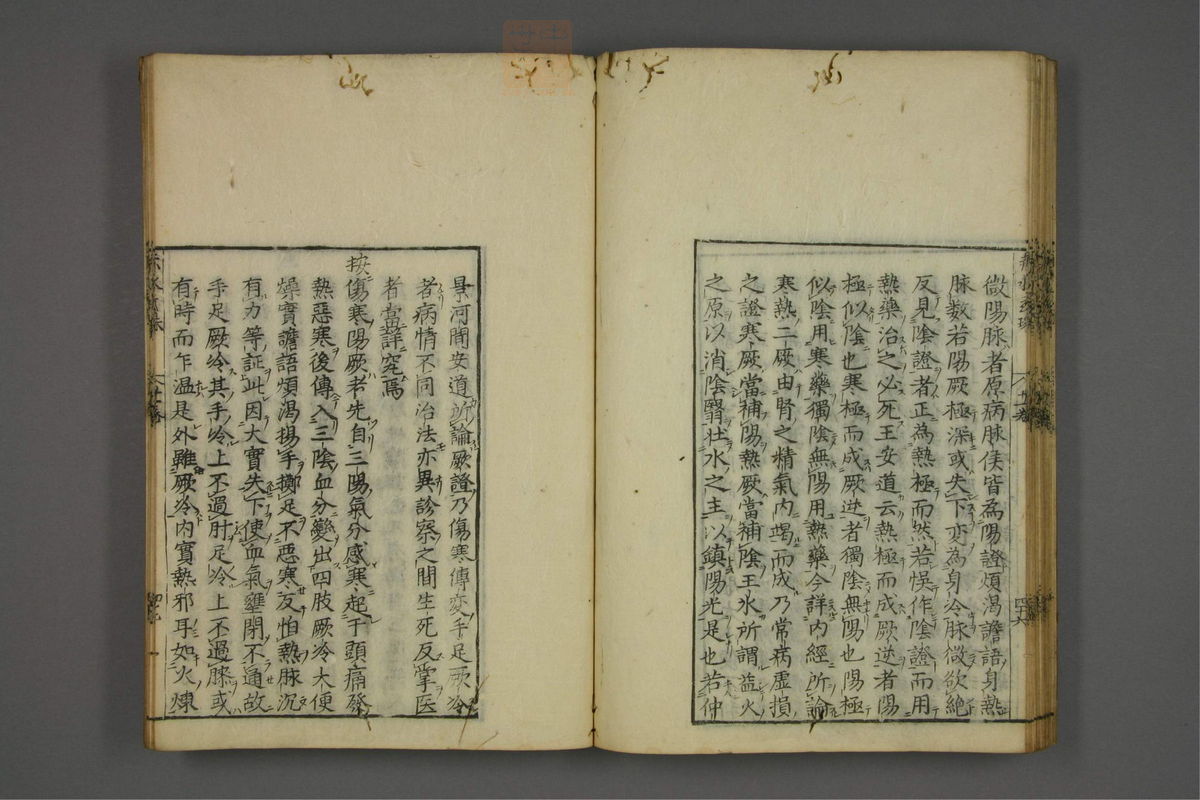 微陽脉者原病脉侯皆為陽證煩渴譫語身熱
脉数若陽厥極深或失下変為身冷脉微欲絶
反見陰證者正為熱極而然若悞作陰證而用
熱藥治之必死王安道云熱極而成厥逆者陽
極似陰也寒極而成厥逆者獨陰無陽也陽極
似陰用寒藥獨陰無陽用熱藥今詳内經所論
寒熱二厥由腎之精氣内竭而成乃常病虚損
之證寒厥當補陽熱厥當補陰王氷所謂益火
之原以消陰翳壮水之主以鎮陽光是也若仲
景河間安道所論厥證乃傷寒傳変手足厥冷
者病情不同治法亦異診察之間生死反掌医
者當詳究焉
按傷寒陽厥者先自三陽氣分感寒起于頭痛發
熱惡寒後傳入三陰血分變出四肢厥冷大便
燥實譫語煩渴揚手擲足不惡寒反怕熱脉沉
有力等証此因大實失下使血氣壅閉不通故
手足厥冷其手冷上不過肘足冷上不過膝或
有時而乍温是外雖厥冷内實熱邪耳如火煉